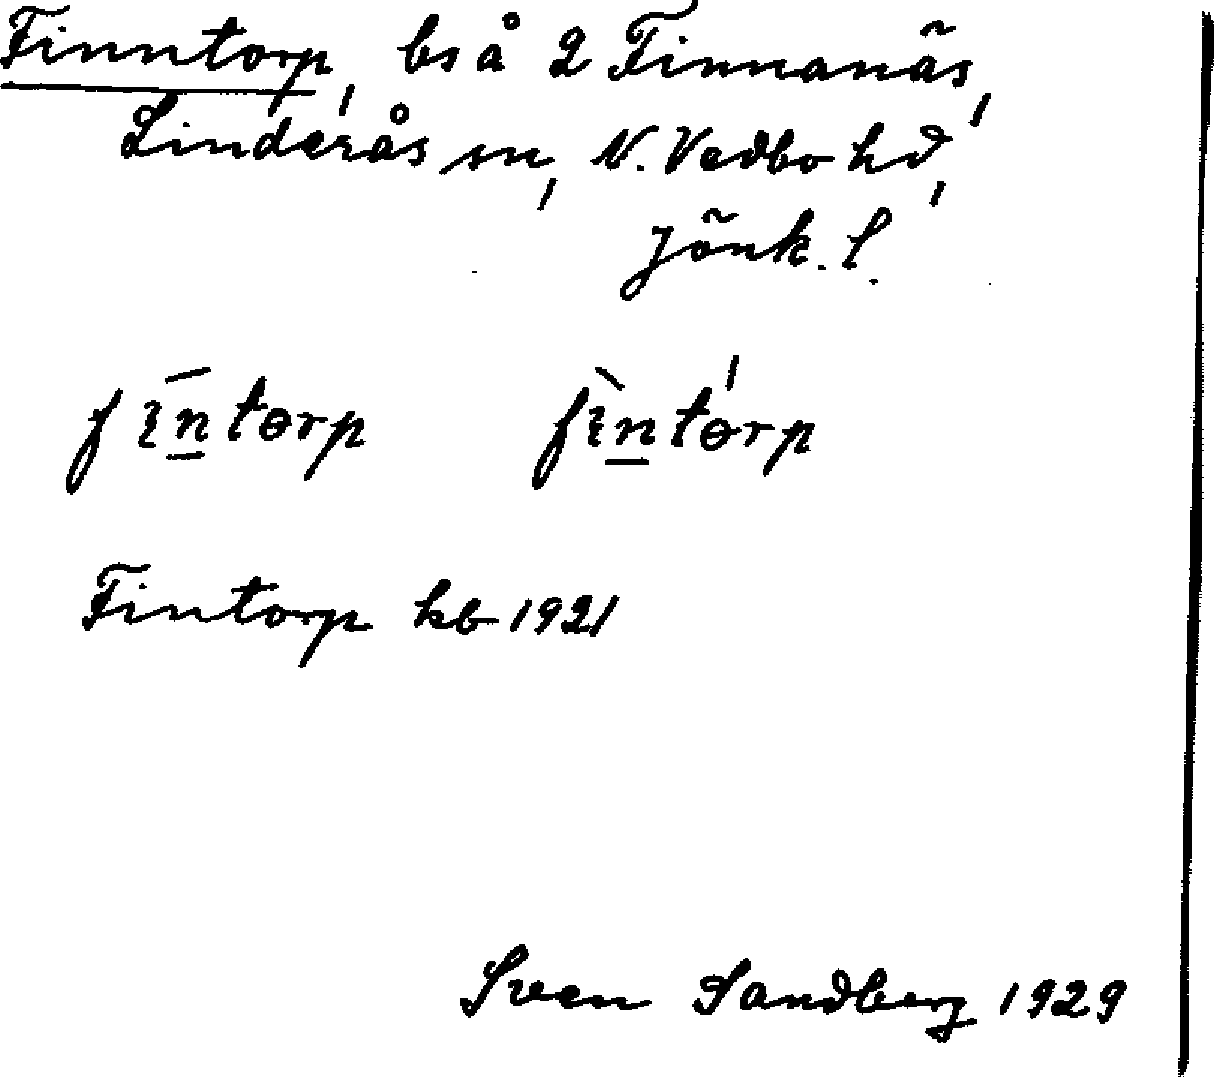 Finntorp, bs å 2 Finnanäs,
Linderås sn, N. Vedbo hd,
Jönk. l.
fɪn̲̄torp fɪ̀n̲tórp
Fintorp kb 1921
Sven Sandberg 1929